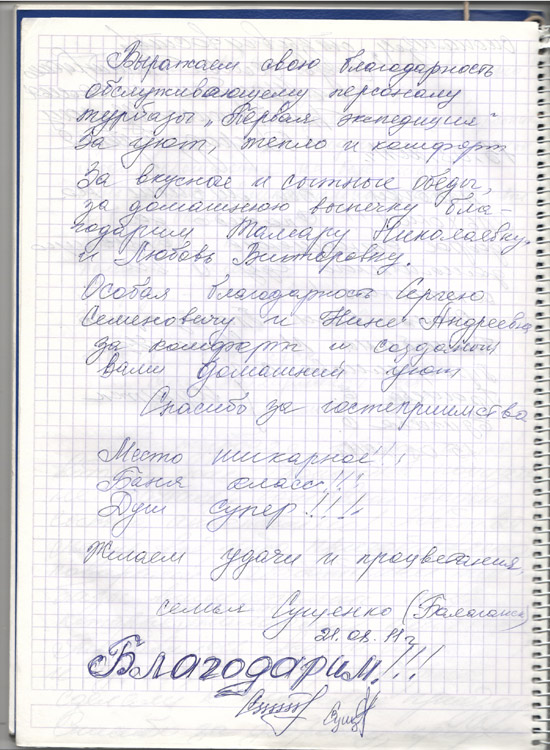 Выражаем свою благодарность
обслуживающему персоналу
турбазы „Первая экспедиция"
За уют, тепло и комфорт
За вкусные и сытные обеды,
за домашнюю выпечку бла-
годарим Тамару Николаевну.
и Любовь Викторовну.
Особая благодарность Сергею
Семеновичу и Нине Андреевне
за комфорт и созданый
вами домашний уют
Спасибо за гостеприимство
Место шикарное!!!
Баня класс!!!
Душ супер!!!!
Желаем удачи и процветания.
семья Сущенко (Балаганск)
21.08.11г
Благодарим!!!